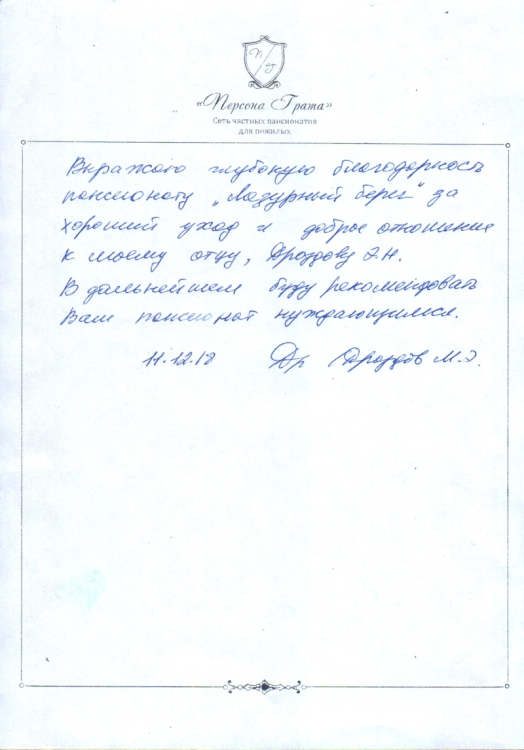 П
Г
«Персона Грата»
Сеть частных пансионатов
для пожилых
Выражаю глубокую благодарность
пансионату „Лазурный берег" за
хороший уход и доброе отношение
к моему отцу, Дроздову Э.Н.
В дальнейшем буду рекомендовать
Ваш пансионат нуждающимся.
11.12.18 Др Дроздов М.Э.